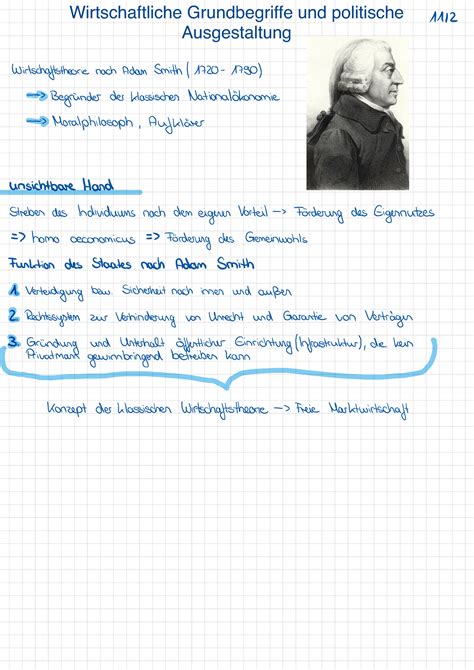 Wirtschaftliche Grundbegriffe und politische
Ausgestaltung
11/2
Wirtschaftstheorie nach Adam Smith (1720-1790)
→ Begründer der klassischen Nationalökonomie
→ Moralphilosoph, Aufklärer
unsichtbare Hand
Streben des Individuums nach dem eigenen Vorteil → Förderung des Eigennutzes
=> homo oeconomicus => Förderung des Gemeinwohls
Funktion des Staates nach Adam Smith
1. Verteidigung bzw. Sicherheit nach innen und außen
2. Rechtssystem zur Verhinderung von Unrecht und Garantie von Verträgen
3. Gründung und Unterhalt öffentlicher Einrichtung (Infrastruktur), die kein
Privatmann gewinnbringend betreiben kann
Konzept der klassischen Wirtschaftstheorie → Freie Marktwirtschaft